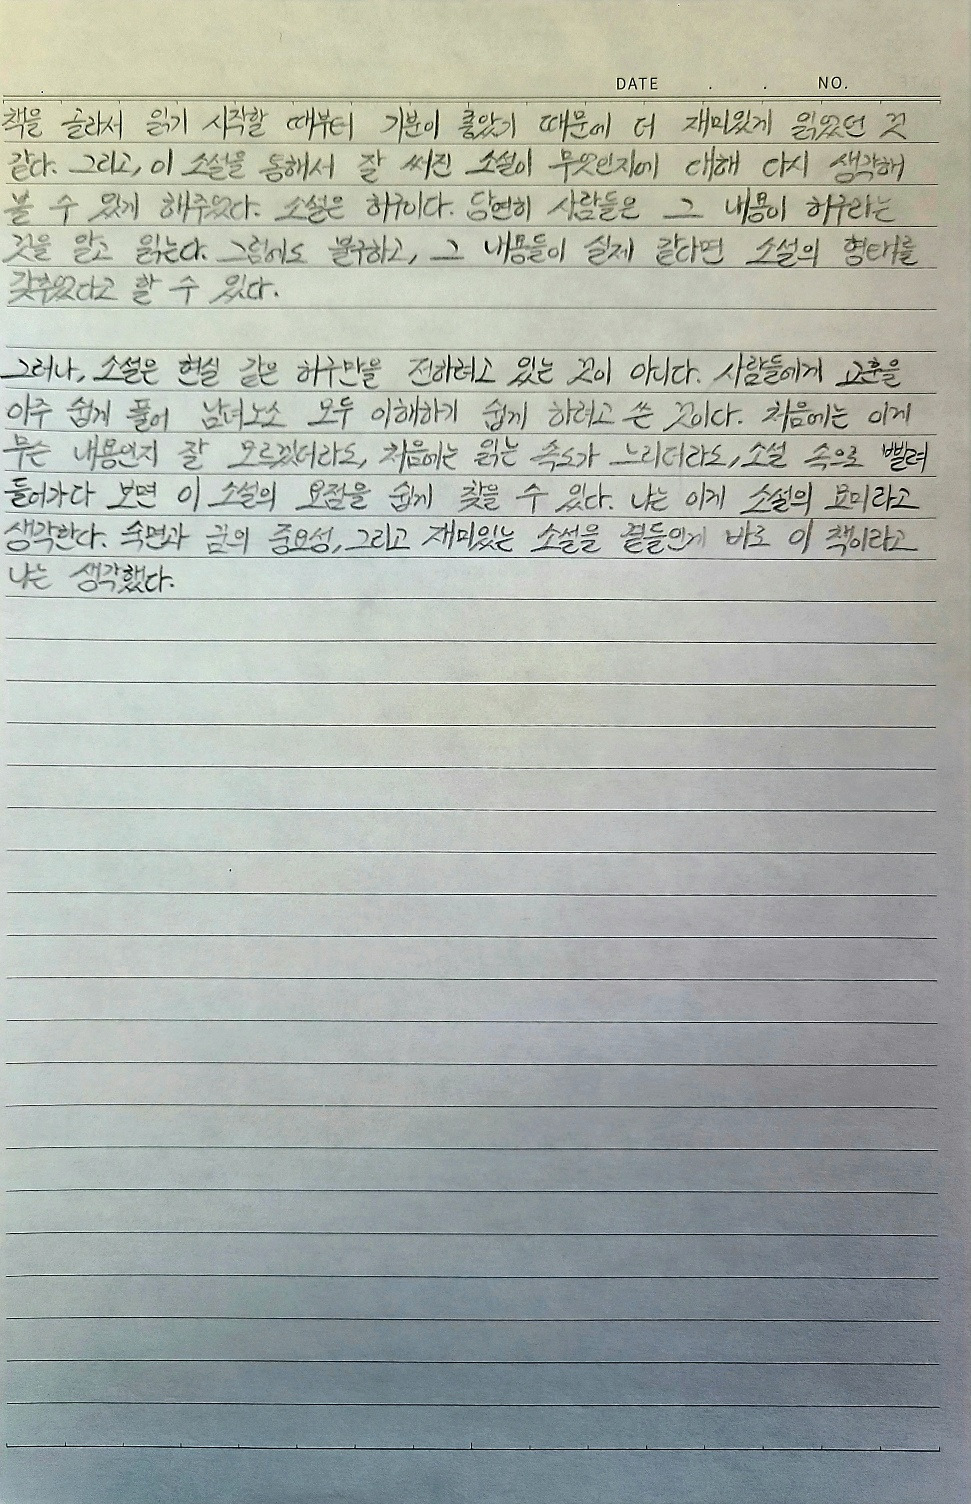 DATE . . NO.
책을 골라서 읽기 시작할 때부터 기분이 좋았기 때문에 더 재미있게 읽었던 것
같다. 그리고, 이 소설을 통해서 잘 써진 소설이 무엇인지에 대해 다시 생각해
볼 수 있게 해주었다. 소설은 허구이다. 당연히 사람들은 그 내용이 허구라는
것을 알고 읽는다. 그럼에도 불구하고, 그 내용들이 실제 같다면 소설의 형태를
갖추었다고 할 수 있다.
그러나, 소설은 현실 같은 허구만을 전하려고 있는 것이 아니다. 사람들에게 교훈을
아주 쉽게 풀어 남녀노소 모두 이해하기 쉽게 하려고 쓴 것이다. 처음에는 이게
무슨 내용인지 잘 모르겠더라도, 처음에는 읽는 속도가 느리더라도, 소설 속으로 빨려
들어가다 보면 이 소설의 요점을 쉽게 찾을 수 있다. 나는 이게 소설의 묘미라고
생각한다. 숙면과 꿈의 중요성, 그리고 재미있는 소설을 곁들인게 바로 이 책이라고
나는 생각했다.